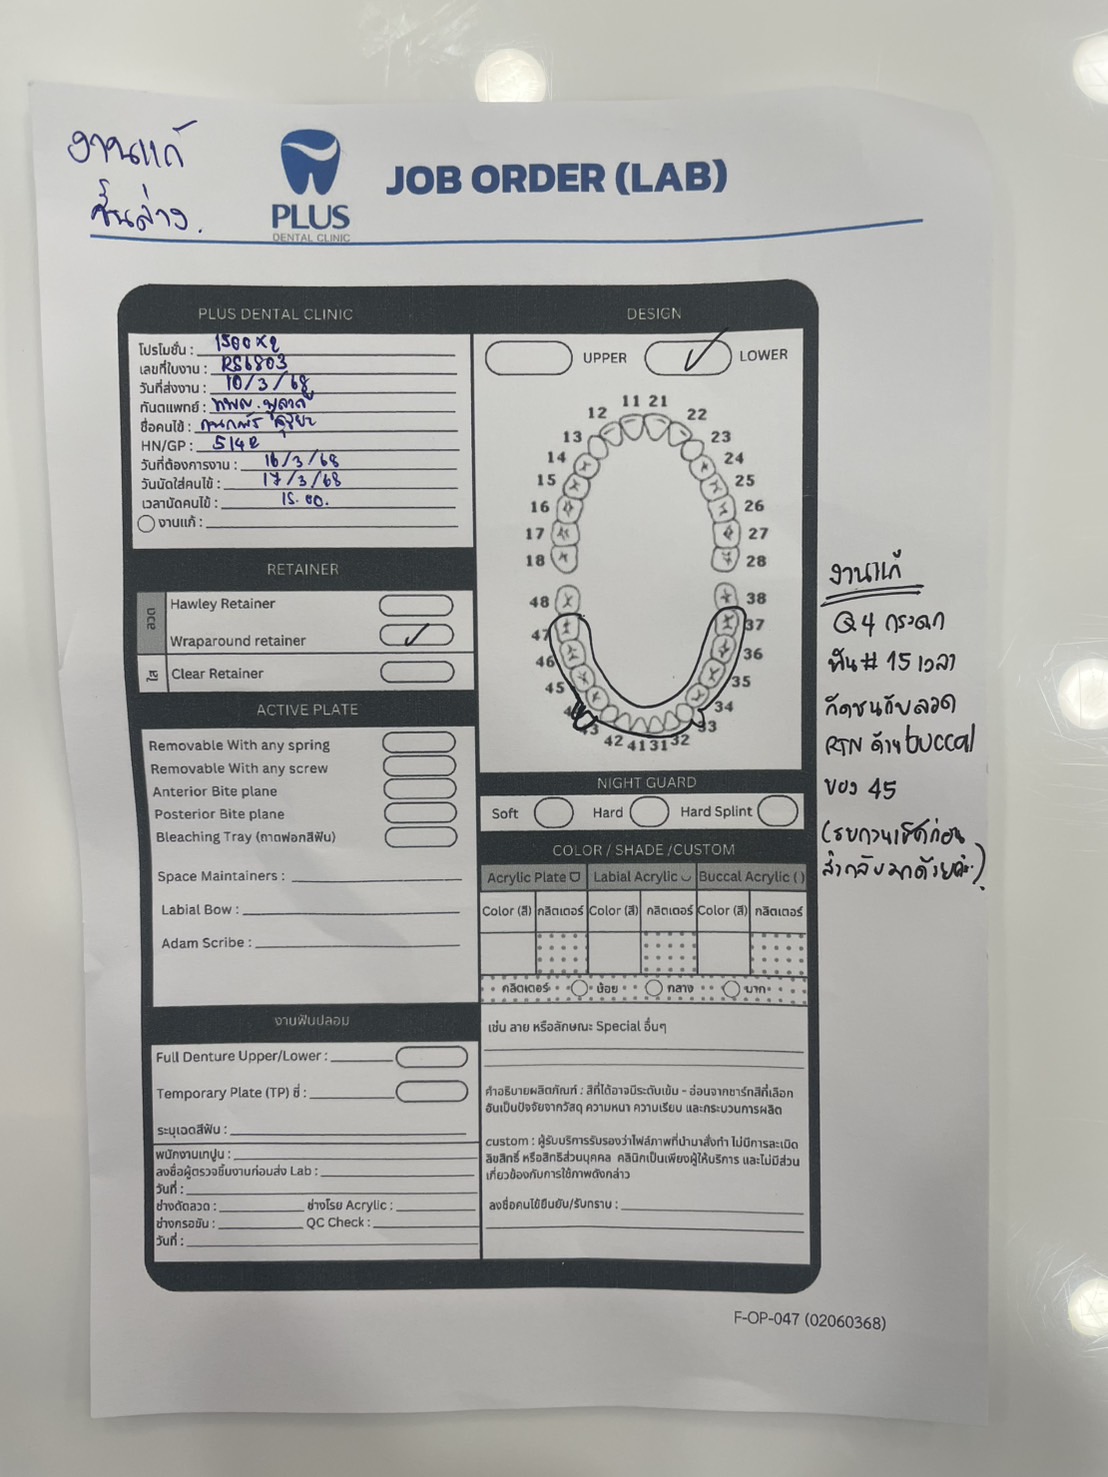 งานแก้
ชิ้นล่าง.
PLUS
DENTAL CLINIC
JOB ORDER (LAB)
PLUS DENTAL CLINIC
โปรโมชั่น : 1500x2
เลขที่ใบงาน : RS6803
วันที่ส่งงาน : 10/3/68
ทันตแพทย์ : ทพญ.
ชื่อคนไข้ :
HN/GP : 5142
วันที่ต้องการงาน : 16/3/68
วันนัดใส่คนไข้ : 17/3/68
เวลานัดคนไข้ : 15.00.
งานแก้ :
DESIGN
UPPER
LOWER
11 21
12 22
13 23
14 24
15 25
16 26
17 27
18 28
48 38
47 37
46 36
45 35
34
43 33
42 41 31 32
RETAINER
ลวด
Hawley Retainer
Wraparound retainer
ใส
Clear Retainer
ACTIVE PLATE
Removable With any spring
Removable With any screw
Anterior Bite plane
Posterior Bite plane
Bleaching Tray (ถาดฟอกสีฟัน)
Space Maintainers :
Labial Bow :
Adam Scribe :
งานฟันปลอม
Full Denture Upper/Lower :
Temporary Plate (TP) ซี่ :
ระบุเฉดสีฟัน :
พนักงานเทปูน :
ลงชื่อผู้ตรวจชิ้นงานก่อนส่ง Lab :
วันที่ :
ช่างดัดลวด : ช่างโรย Acrylic :
ช่างกรอขัน : QC Check :
วันที่ :
NIGHT GUARD
Soft Hard Hard Splint
COLOR / SHADE /CUSTOM
Acrylic Plate Labial Acrylic Buccal Acrylic ( )
Color (สี) กลิตเตอร์ Color (สี) กลิตเตอร์ Color (สี) กลิตเตอร์
กลิตเตอร์ น้อย กลาง มาก
เช่น ลาย หรือลักษณะ Special อื่นๆ
คำอธิบายผลิตภัณฑ์ : สีที่ได้อาจมีระดับเข้ม - อ่อนจากชาร์ทสีที่เลือก
อันเป็นปัจจัยจากวัสดุ ความหนา ความเรียบ และกระบวนการผลิต
custom : ผู้รับบริการรับรองว่าไฟล์ภาพที่นำมาสั่งทำ ไม่มีการละเมิด
ลิขสิทธิ์ หรือสิทธิส่วนบุคคล คลินิกเป็นเพียงผู้ให้บริการ และไม่มีส่วน
เกี่ยวข้องกับการใช้ภาพดังกล่าว
ลงชื่อคนไข้ยืนยัน/รับทราบ :
งานแก้
Q4 กระดก
ฟัน# 15 เวลา
กัดชนกับลวด
RTN ด้าน buccal
ของ 45
(รบกวนเช็คก่อน
ส่งกลับมาด้วยค่ะ)
F-OP-047 (02060368)